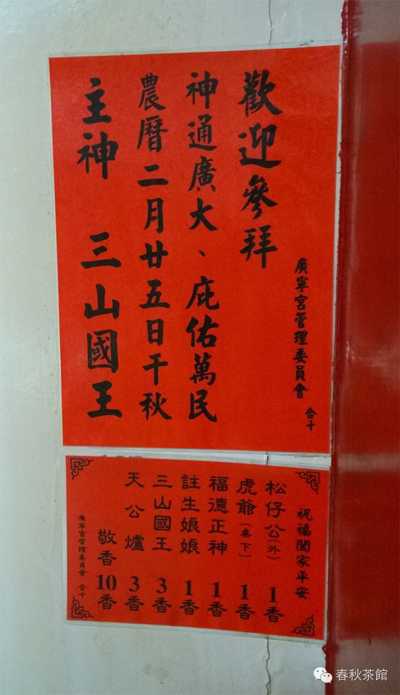 主神 三山國王
農曆二月廿五日千秋
神通廣大、庇佑萬民
歡迎參拜
廣寧宮管理委員會 合十
祝福闔家平安
松仔公(外) 1香
虎爺(桌下) 1香
福德正神 1香
註生娘娘 1香
三山國王 3香
天公爐 3香
敬香10香
廣寧宮管理委員會 合十
春秋茶館